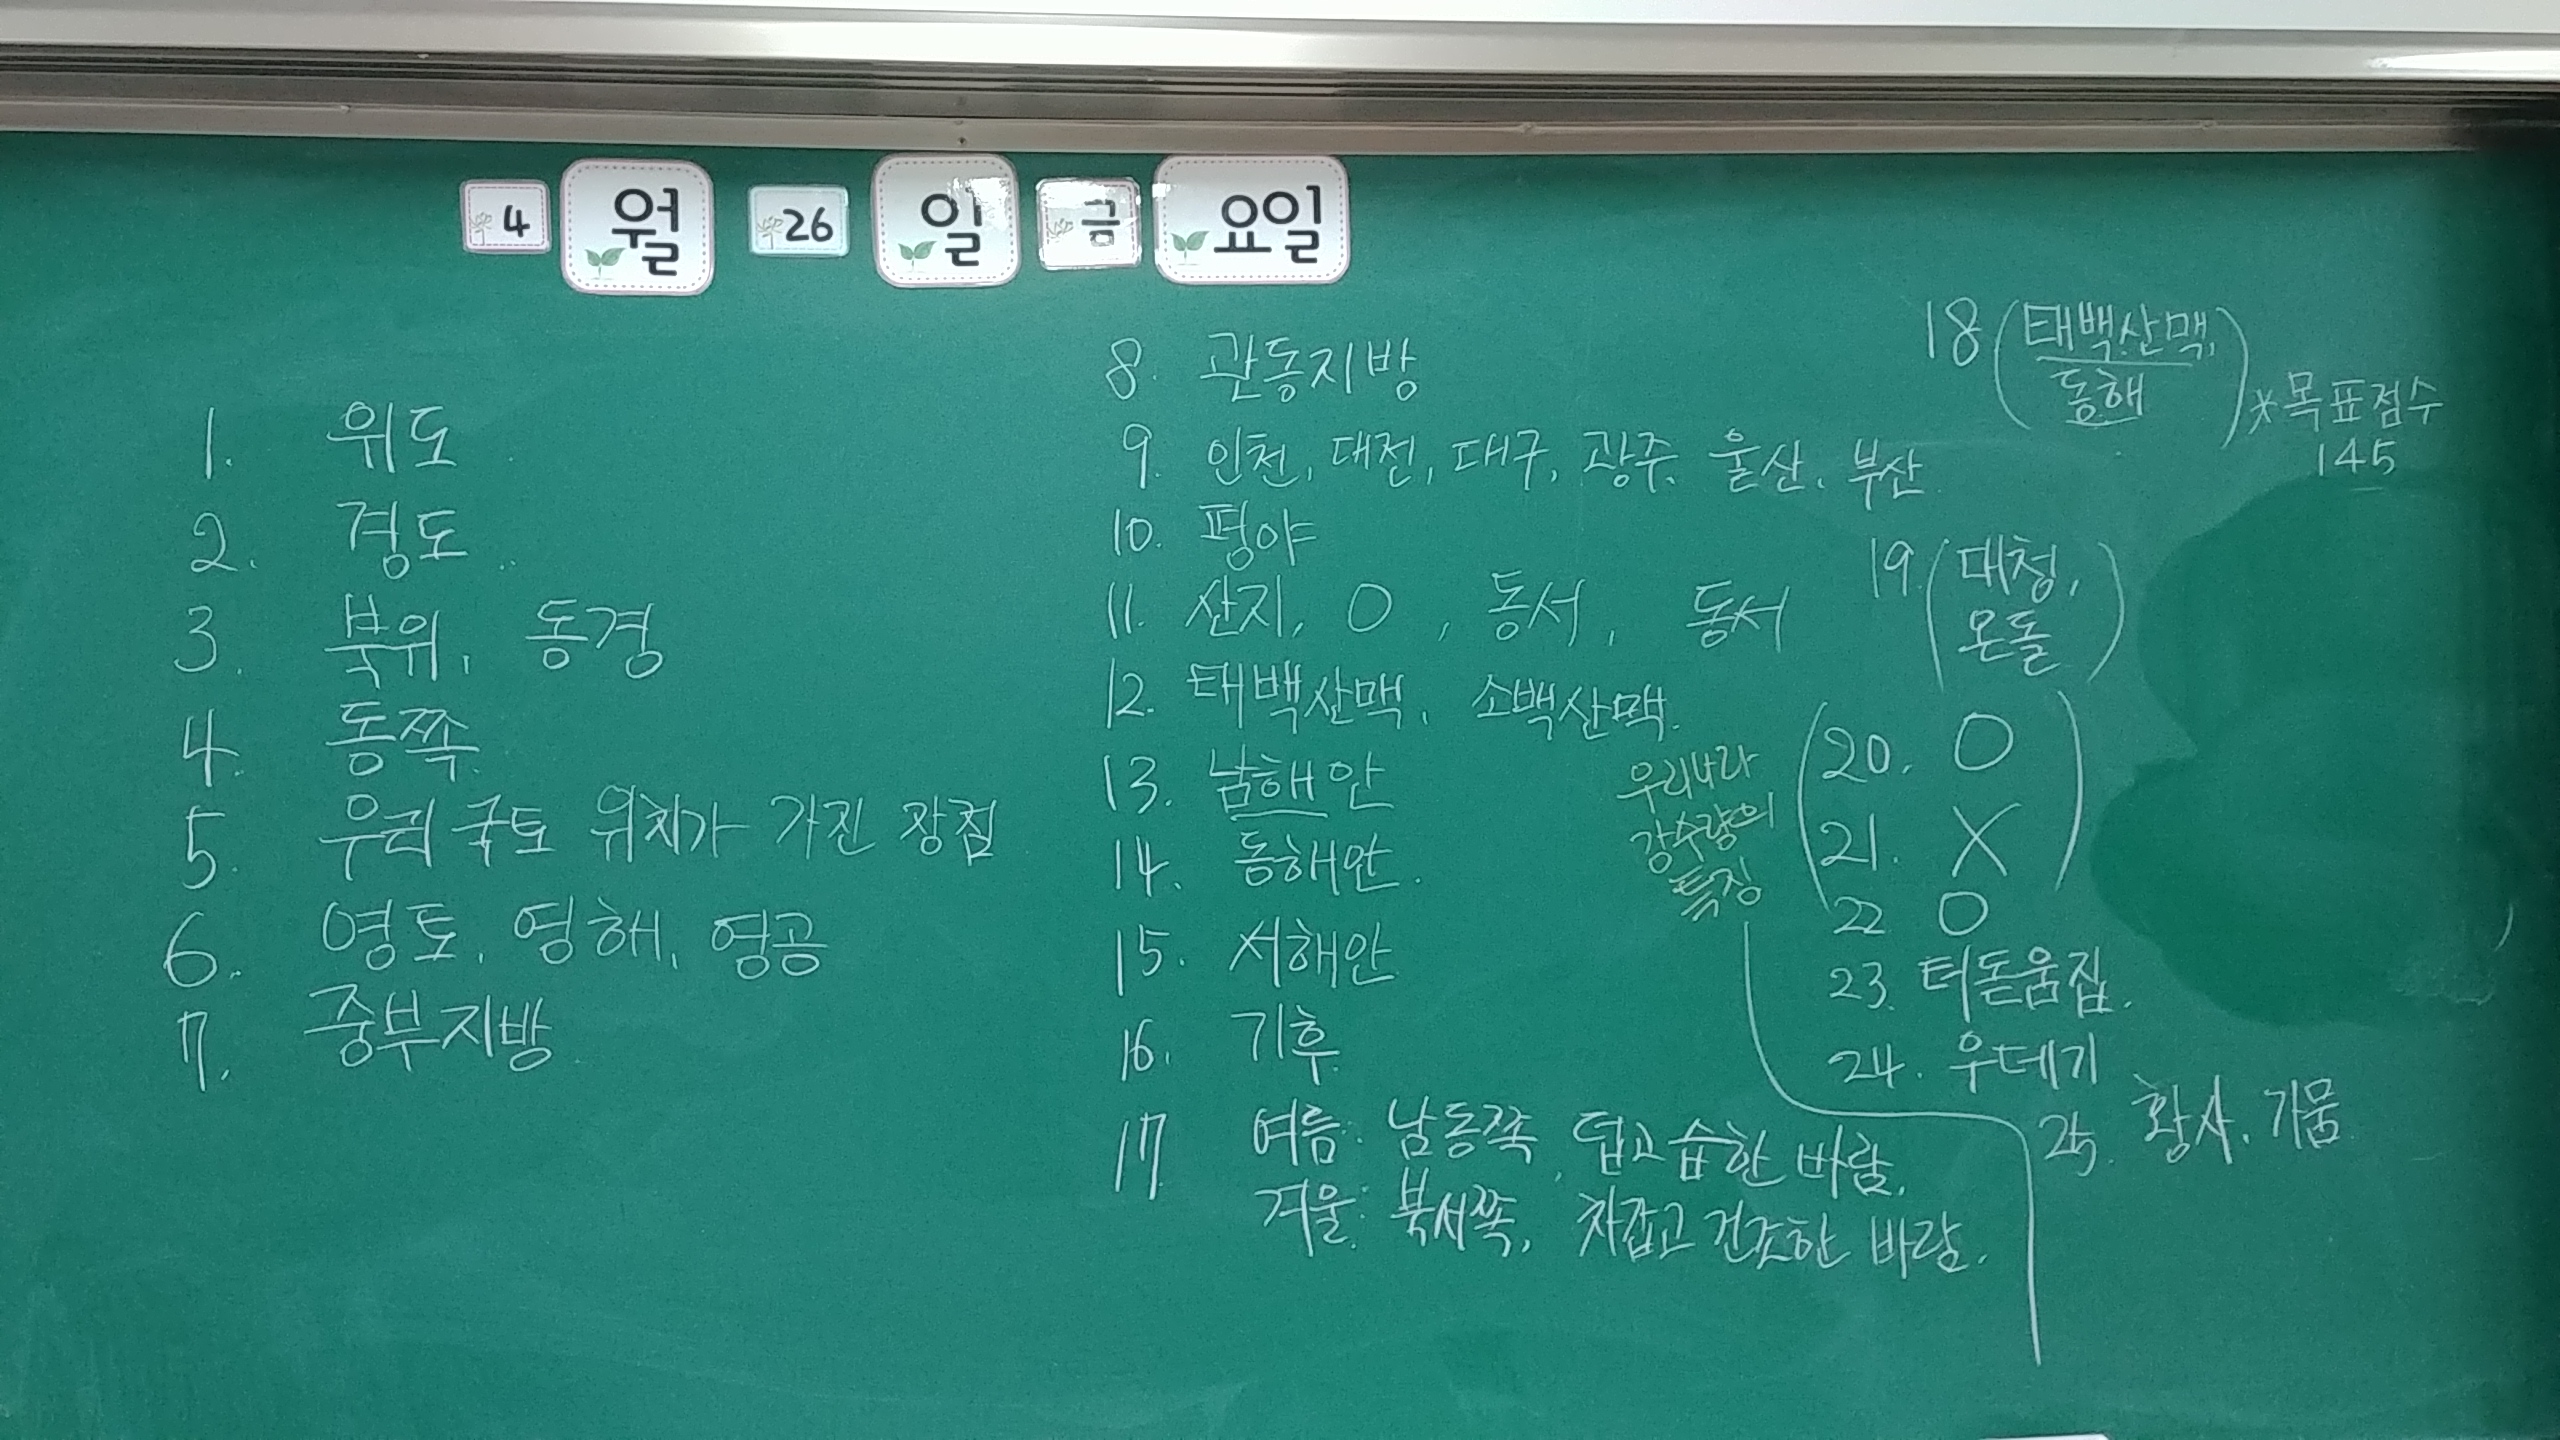 4 월 26 일 금 요일
1. 위도
2. 경도
3. 북위, 동경
4. 동쪽
5. 우리 국토 위치가 가진 장점
6. 영토, 영해, 영공
7. 중부지방
8. 관동지방
9. 인천, 대전, 대구, 광주, 울산, 부산
10. 평야
11. 산지, O, 동서, 동서
12. 태백산맥, 소백산맥.
13. 남해안
14. 동해안.
15. 서해안
16. 기후
17 여름: 남동쪽, 덥고 습한 바람,
겨울: 북서쪽, 차갑고 건조한 바람.
18 (태백산맥,
동해)
*목표점수
145
19. (대청,
온돌)
우리나라
강수량의
특징
20. O
21. X
22 O
23. 터돋움집.
24. 우데기
25. 황사, 가뭄